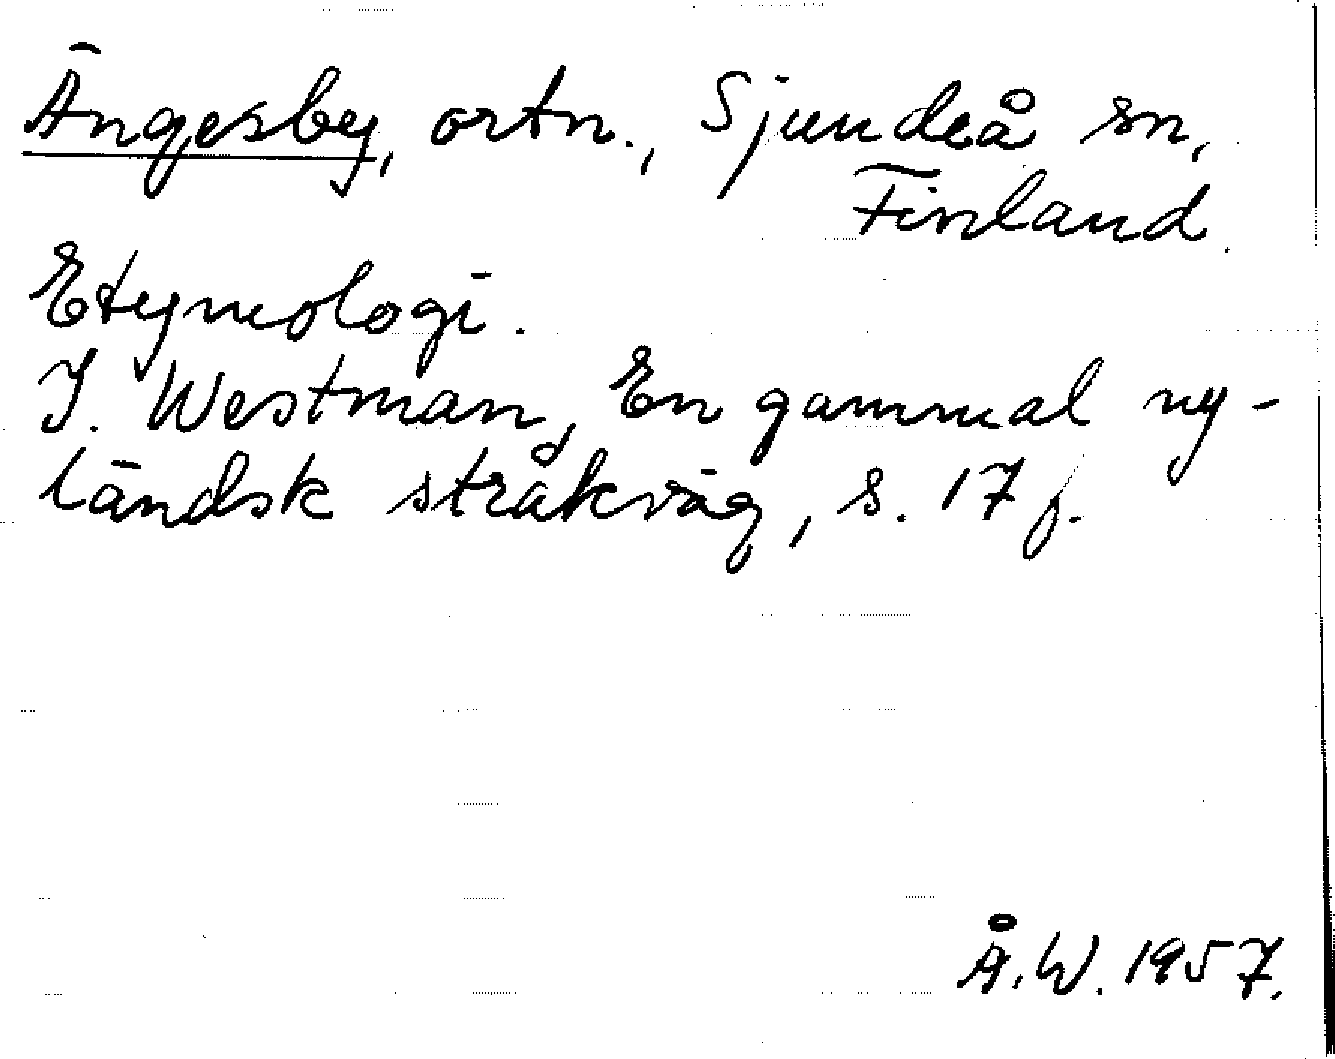 Ängesby, ortn., Sjundeå sn,
Finland.
Etymologi.
I. Westman, En gammal ny-
ländsk stråkväg, s. 17 f.
Å.W. 1957.